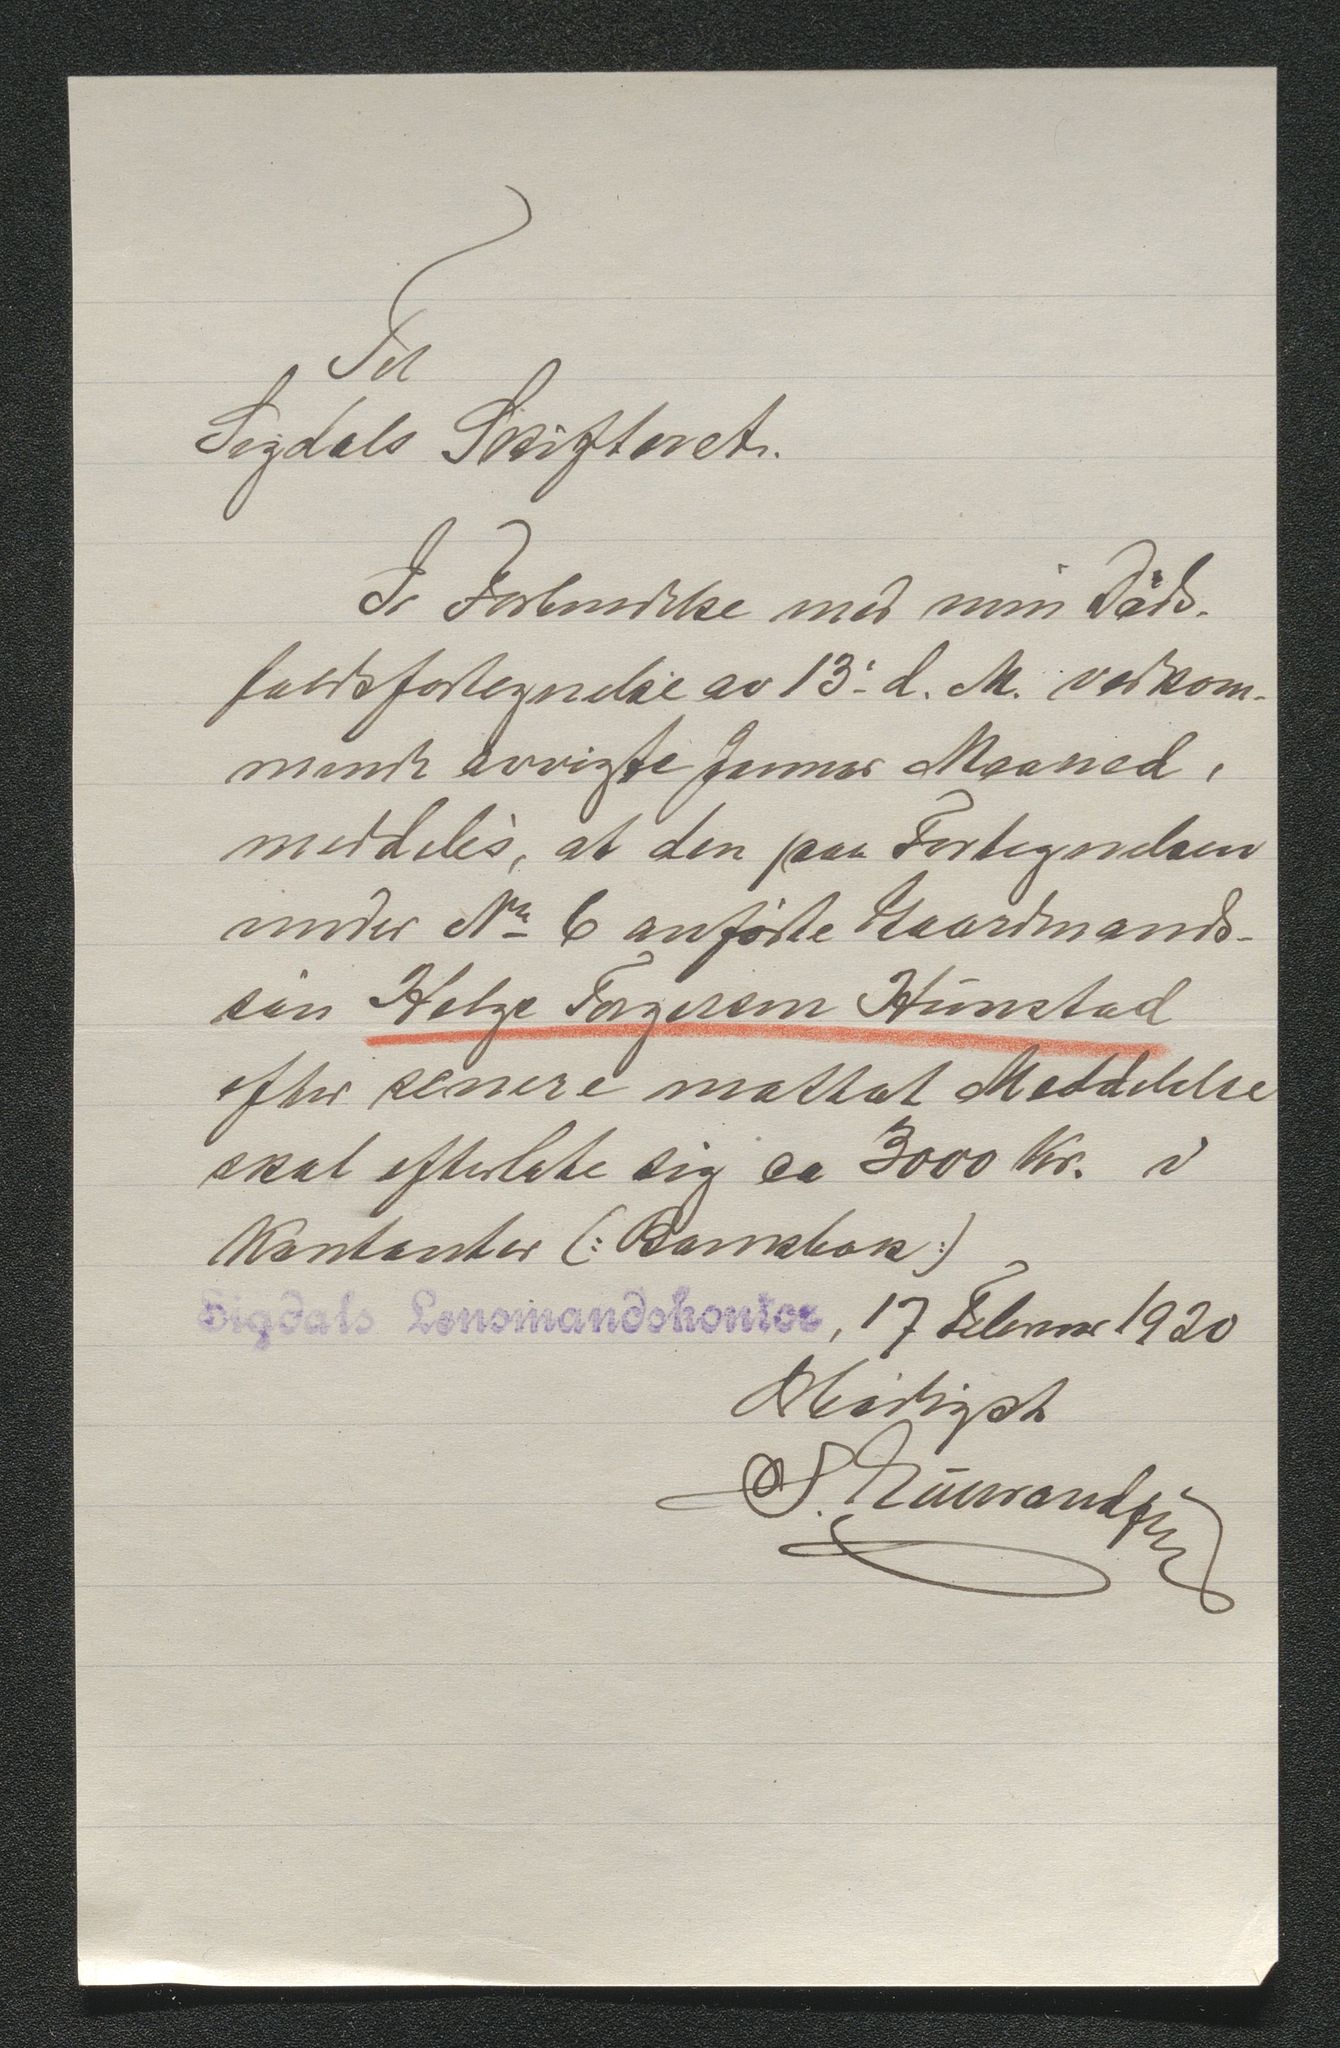 Til
Sigdals Skifteret.
I Forbindelse med min Döds-
faldsfortegnelse av 13'- d. M. vedkom-
mende avvigte Januar Maaned,
meddeles, at den paa Fortegnelsen
under No 6 anförte Gaardmands-
sön Helge Torgersen Hunstad
efter senere mottat Meddelelse
skal efterlate sig ca 3000 Kr. i
Kontanter (: Bankbok :)
Sigdals Lensmandskontor, 17 Februar 1920
Ærbödigst
S.